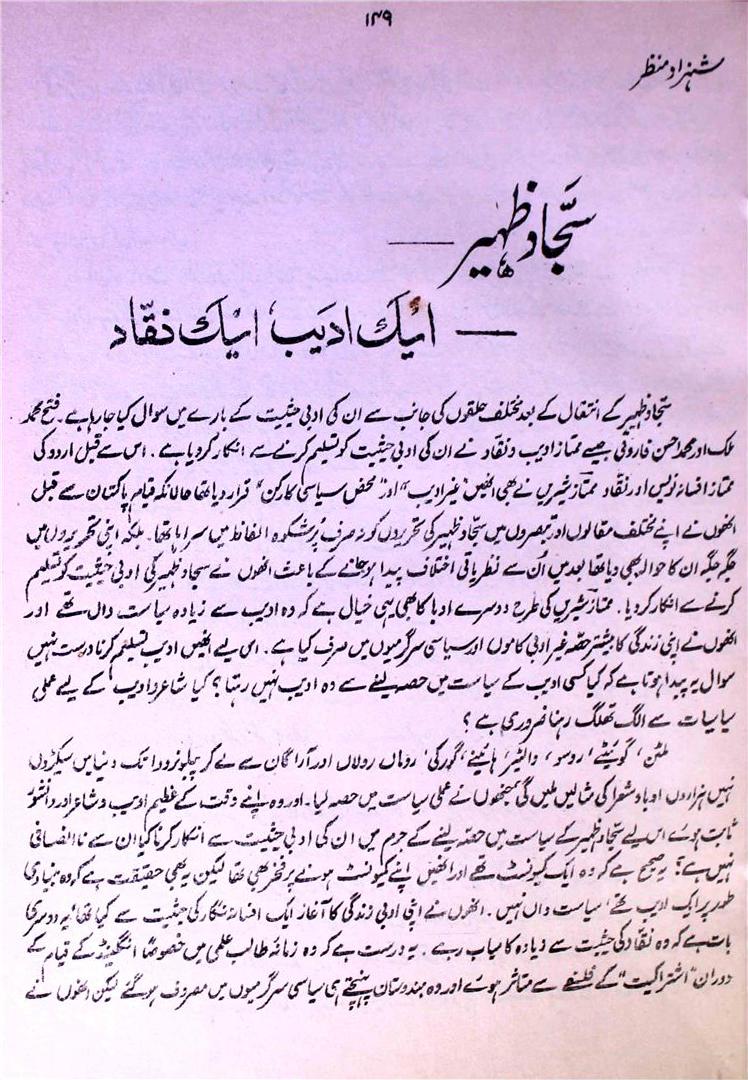 ۱۴۹
شہزاد منظر
سجّاد ظہیر —
— ایک ادیب، ایک نقّاد
سجّاد ظہیر کے انتقال کے بعد مختلف حلقوں کی جانب سے ان کی ادبی حیثیت کے بارے میں سوال کیا جا رہا ہے۔ فتح محمد
ملک اور محمد احسن فاروقی جیسے ممتاز ادیب و نقاد نے ان کی ادبی حیثیت کو تسلیم کرنے سے انکار کر دیا ہے۔ اس سے قبل اردو کی
ممتاز افسانہ نویس اور نقاد ممتاز شیریں نے بھی انھیں "غیر ادیب" اور "محض سیاسی کارکن" قرار دیا تھا حالانکہ قیام پاکستان سے قبل
انھوں نے اپنے مختلف مقالوں اور تبصروں میں سجّاد ظہیر کی تحریروں کو نہ صرف پُرشکوہ الفاظ میں سراہا تھا۔ بلکہ اپنی تحریروں میں
جگہ جگہ ان کا حوالہ بھی دیا تھا بعد میں اُن سے نظریاتی اختلاف پیدا ہو جانے کے باعث انھوں نے سجاد ظہیر کی ادبی حیثیت کو تسلیم
کرنے سے انکار کر دیا۔ ممتاز شیریں کی طرح دوسرے ادبا کا بھی یہی خیال ہے کہ وہ ادیب سے زیادہ سیاست داں تھے اور
انھوں نے اپنی زندگی کا بیشتر حصّہ غیر ادبی کاموں اور سیاسی سرگرمیوں میں صرف کیا ہے۔ اس لیے انھیں ادیب تسلیم کرنا درست نہیں
سوال یہ پیدا ہوتا ہے کہ کیا کسی ادیب کے سیاست میں حصہ لینے سے وہ ادیب نہیں رہتا؟ کیا شاعر و ادیب کے لیے عملی
سیاسیات سے الگ تھلگ رہنا ضروری ہے؟
ملٹن، گوئٹے، روسو، والٹیر، ہائینے، گورکی، روماں رولاں اور آراگاں سے لے کر پبلونرودا تک دنیا میں سیکڑوں
نہیں ہزاروں ادبا و شعرا کی مثالیں ملیں گی جنھوں نے عملی سیاست میں حصہ لیا۔ اور وہ اپنے وقت کے عظیم ادیب و شاعر اور دانشور
ثابت ہوئے اس لیے سجّاد ظہیر کے سیاست میں حصّہ لینے کے جرم میں ان کی ادبی حیثیت سے انکار کرنا کیا ان سے نا انصافی
نہیں ہے؟ یہ صحیح ہے کہ وہ ایک کمیونسٹ تھے اور انھیں اپنے کمیونسٹ ہونے پر فخر بھی تھا لیکن یہ بھی حقیقت ہے کہ وہ بنیادی
طور پر ایک ادیب تھے، سیاست داں نہیں۔ انھوں نے اپنی ادبی زندگی کا آغاز ایک افسانہ نگار کی حیثیت سے کیا تھا، یہ دوسری
بات ہے کہ وہ نقاد کی حیثیت سے زیادہ کامیاب رہے۔ یہ درست ہے کہ وہ زمانہ طالب علمی میں خصوصاً انگلینڈ کے قیام کے
دوران "اشتراکیت" کے فلسفے سے متاثر ہوئے اور وہ ہندوستان پہنچتے ہی سیاسی سرگرمیوں میں مصروف ہو گئے لیکن انھوں نے